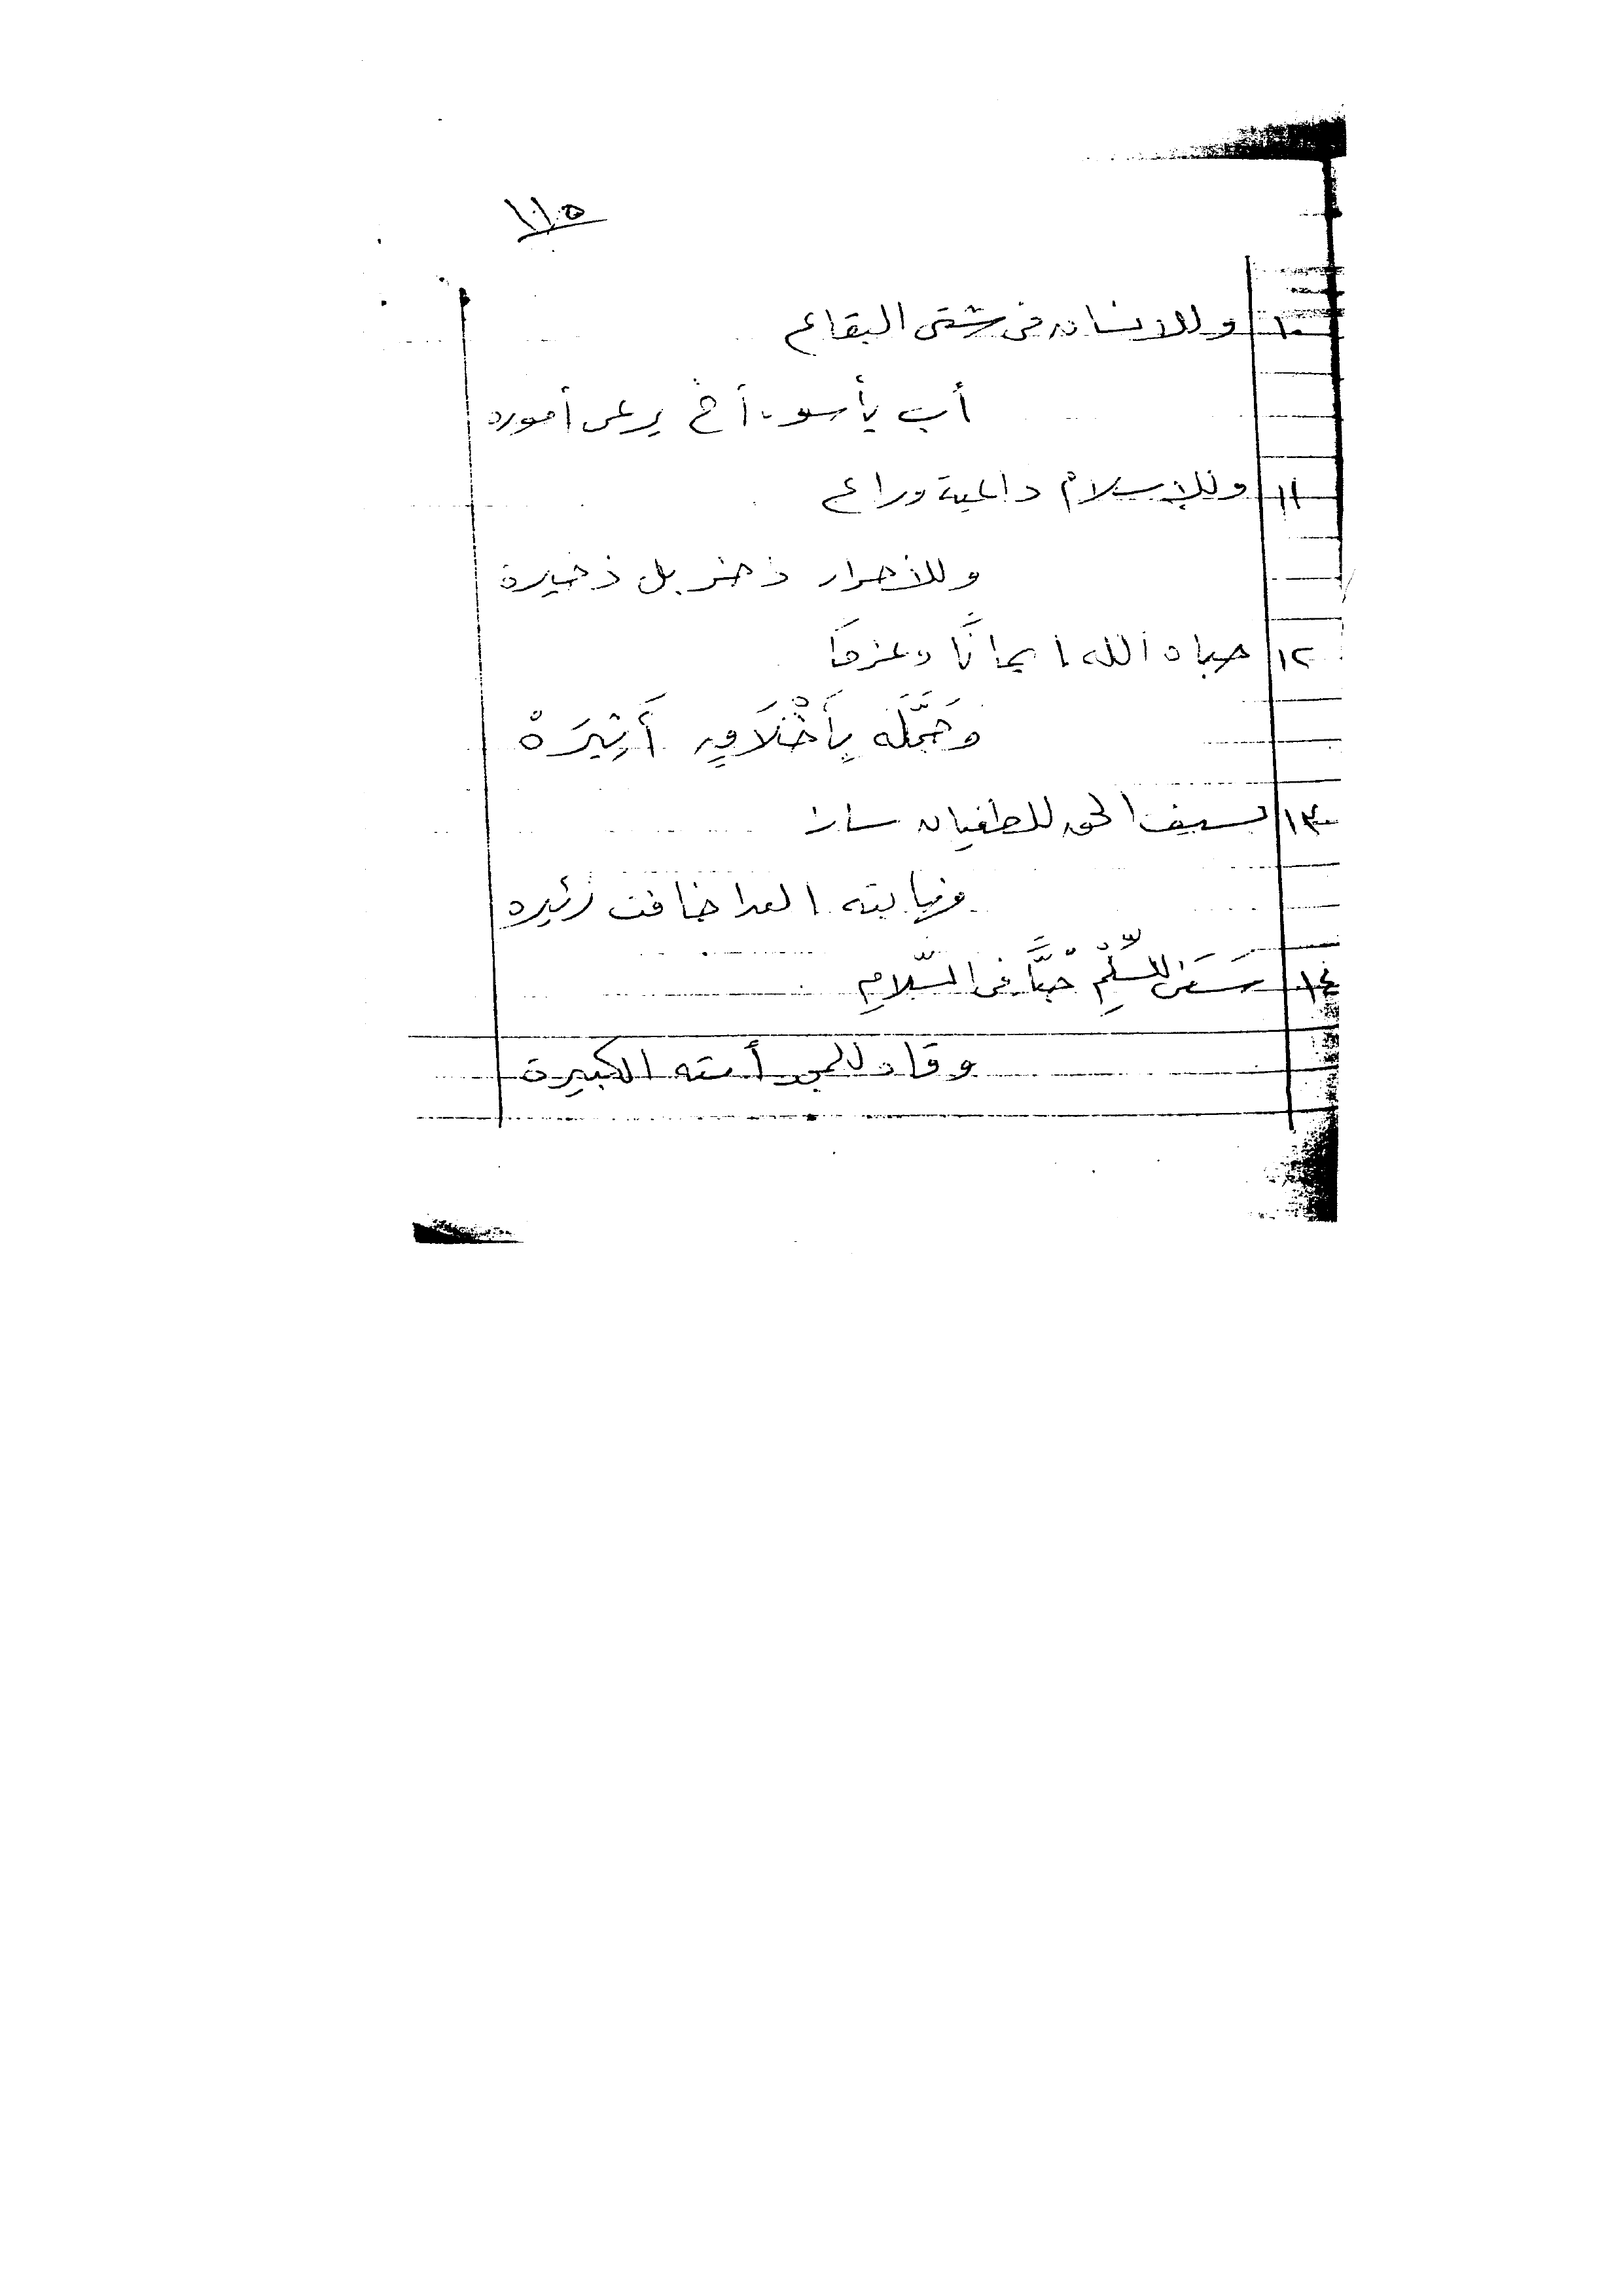 ١١٥
١٠ وللانسان فى شتى البقاع
أب يأسو، أخ يرعى أموره
١١ وللإسلام داعية وراع
وللأحرار ذخر بل ذخيرة
١٢ حباه الله ايمانًا وعزمًا
وَجَمَّلَه بِأَخْلَاقٍ أَثِيرَهْ
١٣ بسيف الحق للطغيان سار
العدا خافت زئيره
١٤ سَعَى لِلسِّلْمِ حُبًّا فى السّلامِ
وقاد للمجد أمته الكبيرة